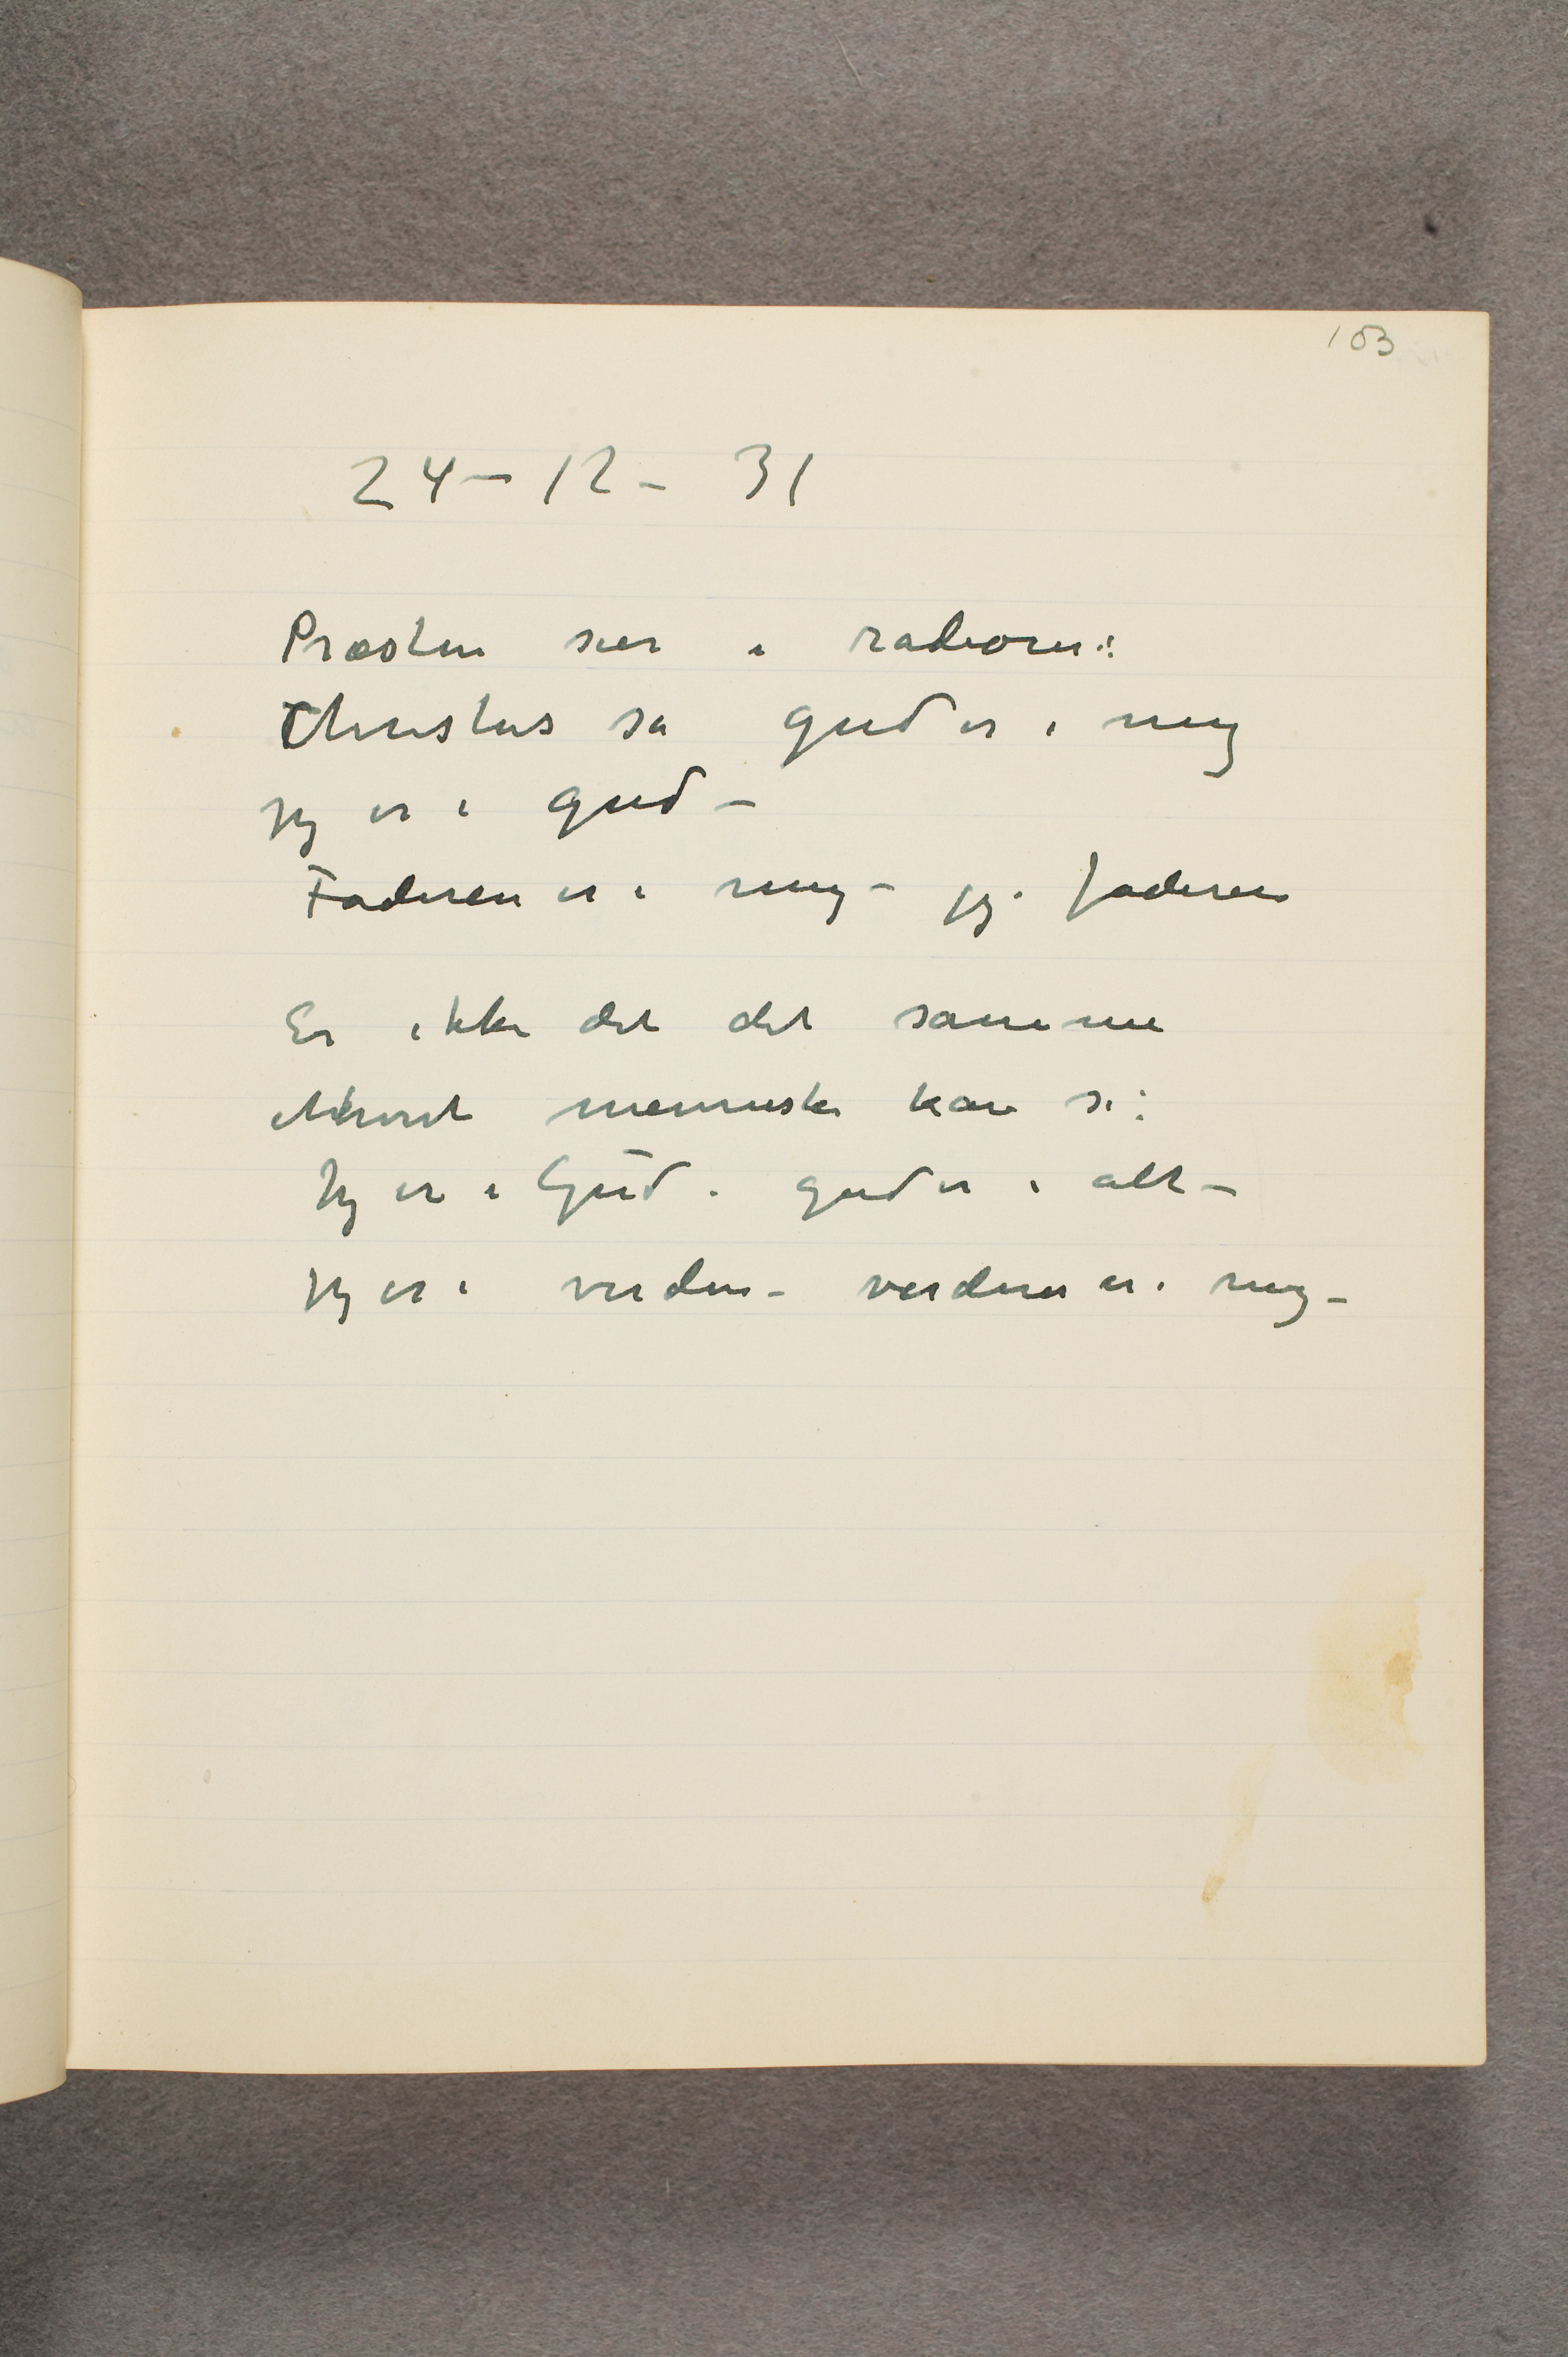 103
24– 12– 31
Præsten sier i radioen:
Christus sa gud er i mig
jeg er i gud –
Faderen er i mig – jeg i faderen
Er ikke det det samme
ethvert menneske kan si:
Jeg er i Gud. gud er i alt –
jeg er i verden – verden er i mig –